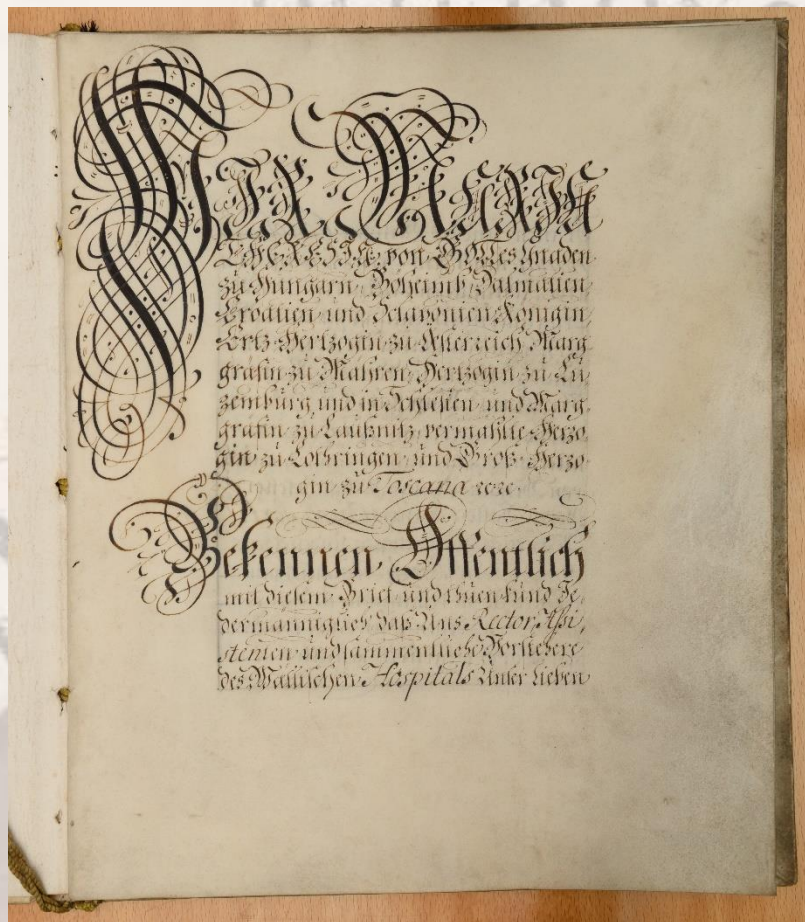 WIR MARIA
THERESIA von GOttes Gnaden
zu Hungarn, Boheimb, Dalmatien,
Croatien, und Sclavonien Königin,
Ertz-Hertzogin zu Österreich, Marg-
gräfin zu Mähren, Hertzogin zu Lu-
zemburg, und in Schlesien, und Marg-
gräfin zu Laußnitz, vermählte Herzo-
gin zu Lothringen, und Groß-Herzo-
gin zu Toscana
Bekennen Öffentlich
mit diesem Brief, und thuen kund Je-
dermänniglich, daß Uns Rector, Assi-
stenten und sammentliche Vorstehere
des Wällischen Hospitals Unser Lieben